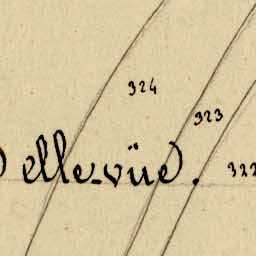 324
323
elle-vüe.
322